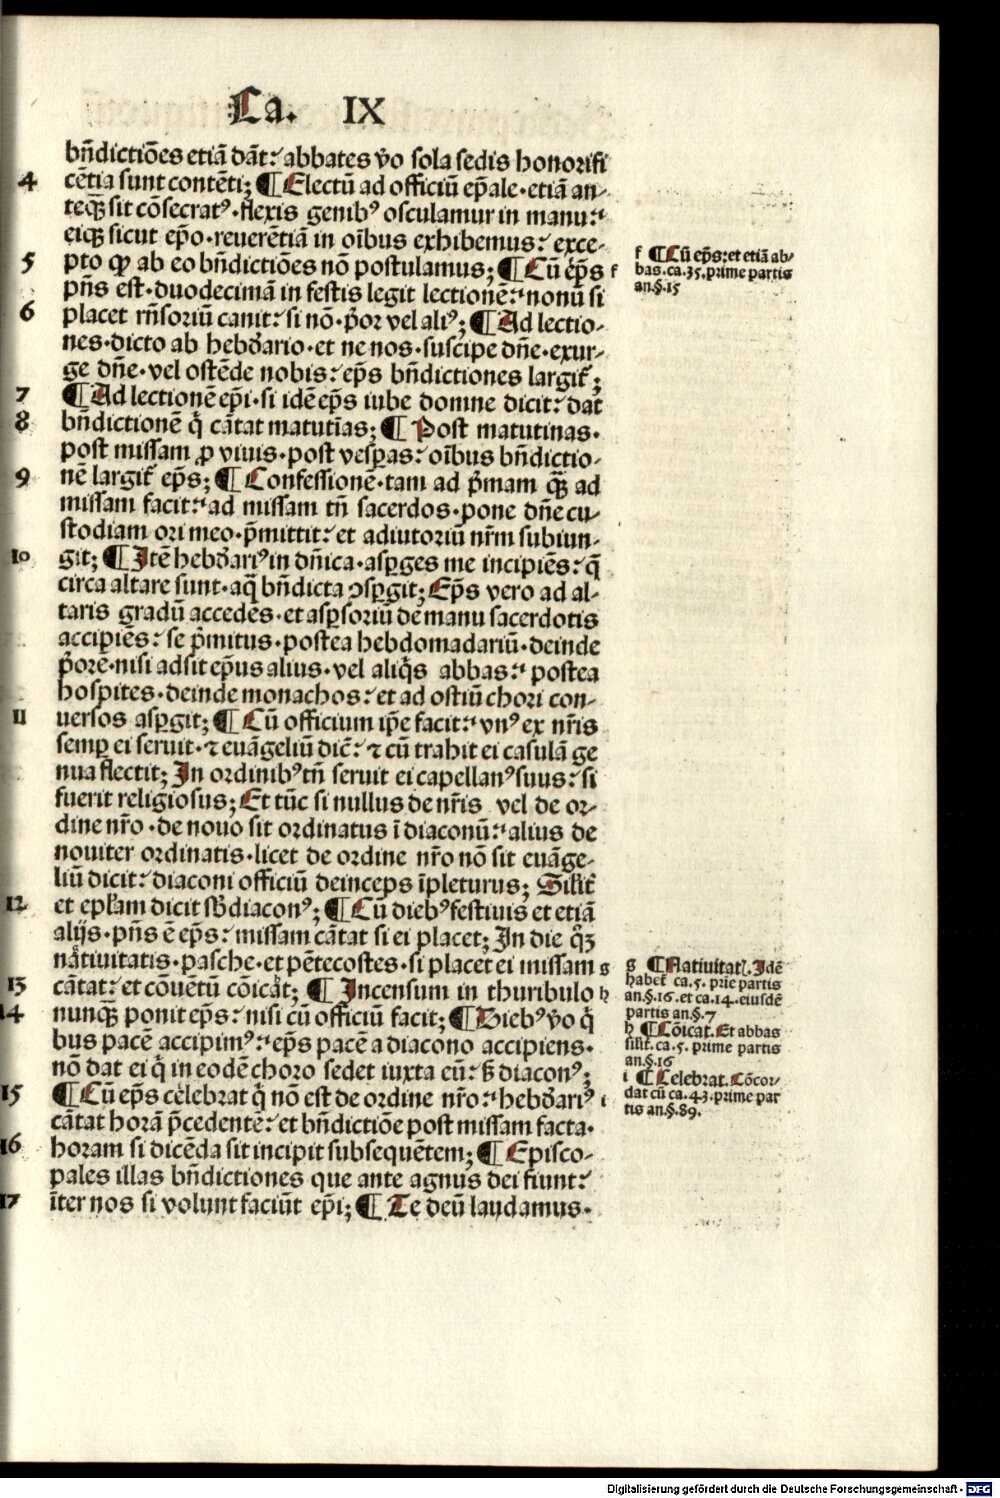 Ca. IX
bn̄dictiōes etiā dāt: abbates v̊o sola sedis honorifi
4 cētia sunt contēti; ¶ Electū ad officiū ep̄ale·etiā an-
teq̄ꝫ sit cōsecratꝰ·flexis genibꝰ osculamur in manu:
eiqꝫ sicut ep̄o·reuerētiā in oībus exhibemus: exce-
5 pto ꝙ ab eo bn̄dictiōes nō postulamus; ¶ Cū ep̄s f
pn̄s est·duodecimā in festis legit lectionē: nonū si
6 placet rn̄soriū canit: si nō·p̊or vel aliꝰ; ¶ Ad lectio-
nes·dicto ab hebd̄ario·et ne nos·suscipe dn̄e·exur-
ge dn̄e·vel ostēde nobis: ep̄s bn̄dictiones largit̄;
7 ¶ Ad lectionē ep̄i·si idē ep̄s iube domne dicit: dat
8 bn̄dictionē q̇ cātat matutīas; ¶ Post matutinas·
post missam ꝓ viuis·post vesꝑas: oībus bn̄dictio-
9 nē largit̄ ep̄s; ¶ Confessionē·tam ad p̄mam q̄ꝫ ad
missam facit: ad missam tn̄ sacerdos·pone dn̄e cu-
stodiam ori meo·p̄mittit: et adiutoriū nr̄m subiun-
10 git; ¶ Itē hebd̄ariꝰ in dn̄ica·asꝑges me incipiēs: q̄
circa altare sunt·aq̄ bn̄dicta ↄsꝑgit; Ep̄s vero ad al-
taris gradū accedēs·et asꝑsoriū de manu sacerdotis
accipiēs: se p̄mitus·postea hebdomadariū·deinde
p̊ore·nisi adsit ep̄us alius·vel aliq̇s abbas: postea
hospites·deinde monachos: et ad ostiū chori con-
11 uersos asꝑgit; ¶ Cū officium ip̄e facit: vnꝰ ex nr̄is
semꝑ ei seruit·⁊ euāgeliū dic̄: ⁊ cū trahit ei casulā ge
nua flectit; In ordinibꝰ tn̄ seruit ei capellanꝰ suus: si
fuerit religiosus; Et tūc si nullus de nr̄is vel de or-
dine nr̄o·de nouo sit ordinatus ī diaconū: alius de
nouiter ordinatis·licet de ordine nr̄o nō sit euāge-
liū dicit: diaconi officiū deinceps īpleturus; Silit̄
12 et epl̄am dicit sb̄diaconꝰ; ¶ Cū diebꝰ festiuis et etiā
alijs·pn̄s ē ep̄s: missam cātat si ei placet; In die q̊ꝫ
natiuitatis·pasche·et pētecostes·si placet ei missam g
13 cātat: et cōuētū cōicat; ¶ Incensum in thuribulo h
14 nunq̄ꝫ ponit ep̄s: nisi cū officiū facit; ¶ Diebꝰ v̊o q̇
bus pacē accipimꝰ: ep̄s pacē a diacono accipiens·
nō dat ei q̇ in eodē choro sedet iuxta eū: sꝫ diaconꝰ;
15 ¶ Cū ep̄s celebrat q̇ nō est de ordine nr̄o: hebd̄ariꝰ i
cātat horā p̄cedentē: et bn̄dictiōe post missam facta·
16 horam si dicēda sit incipit subsequētem; ¶ Episco-
pales illas bn̄dictiones que ante agnus dei fiunt:
17 īter nos si volunt faciūt ep̄i; ¶ Te deū laudamus·
f ¶ Cū ep̄s: et etiā ab-
bas. ca. 35. prime partis
an. §. 15
g ¶ Natiuitatꝭ. Idē
habet̄ ca. 5. prīe partis
an. §. 16. et ca. 14. eiusdē
partis an. §. 7
h ¶ Cōicat. Et abbas
silit̄. ca. 5. prime partis
an. §. 16
i ¶ Celebrat. Cōcor-
dat cū ca. 43. prime par
tis an. §. 89.
Digitalisierung gefördert durch die Deutsche Forschungsgemeinschaft - DFG